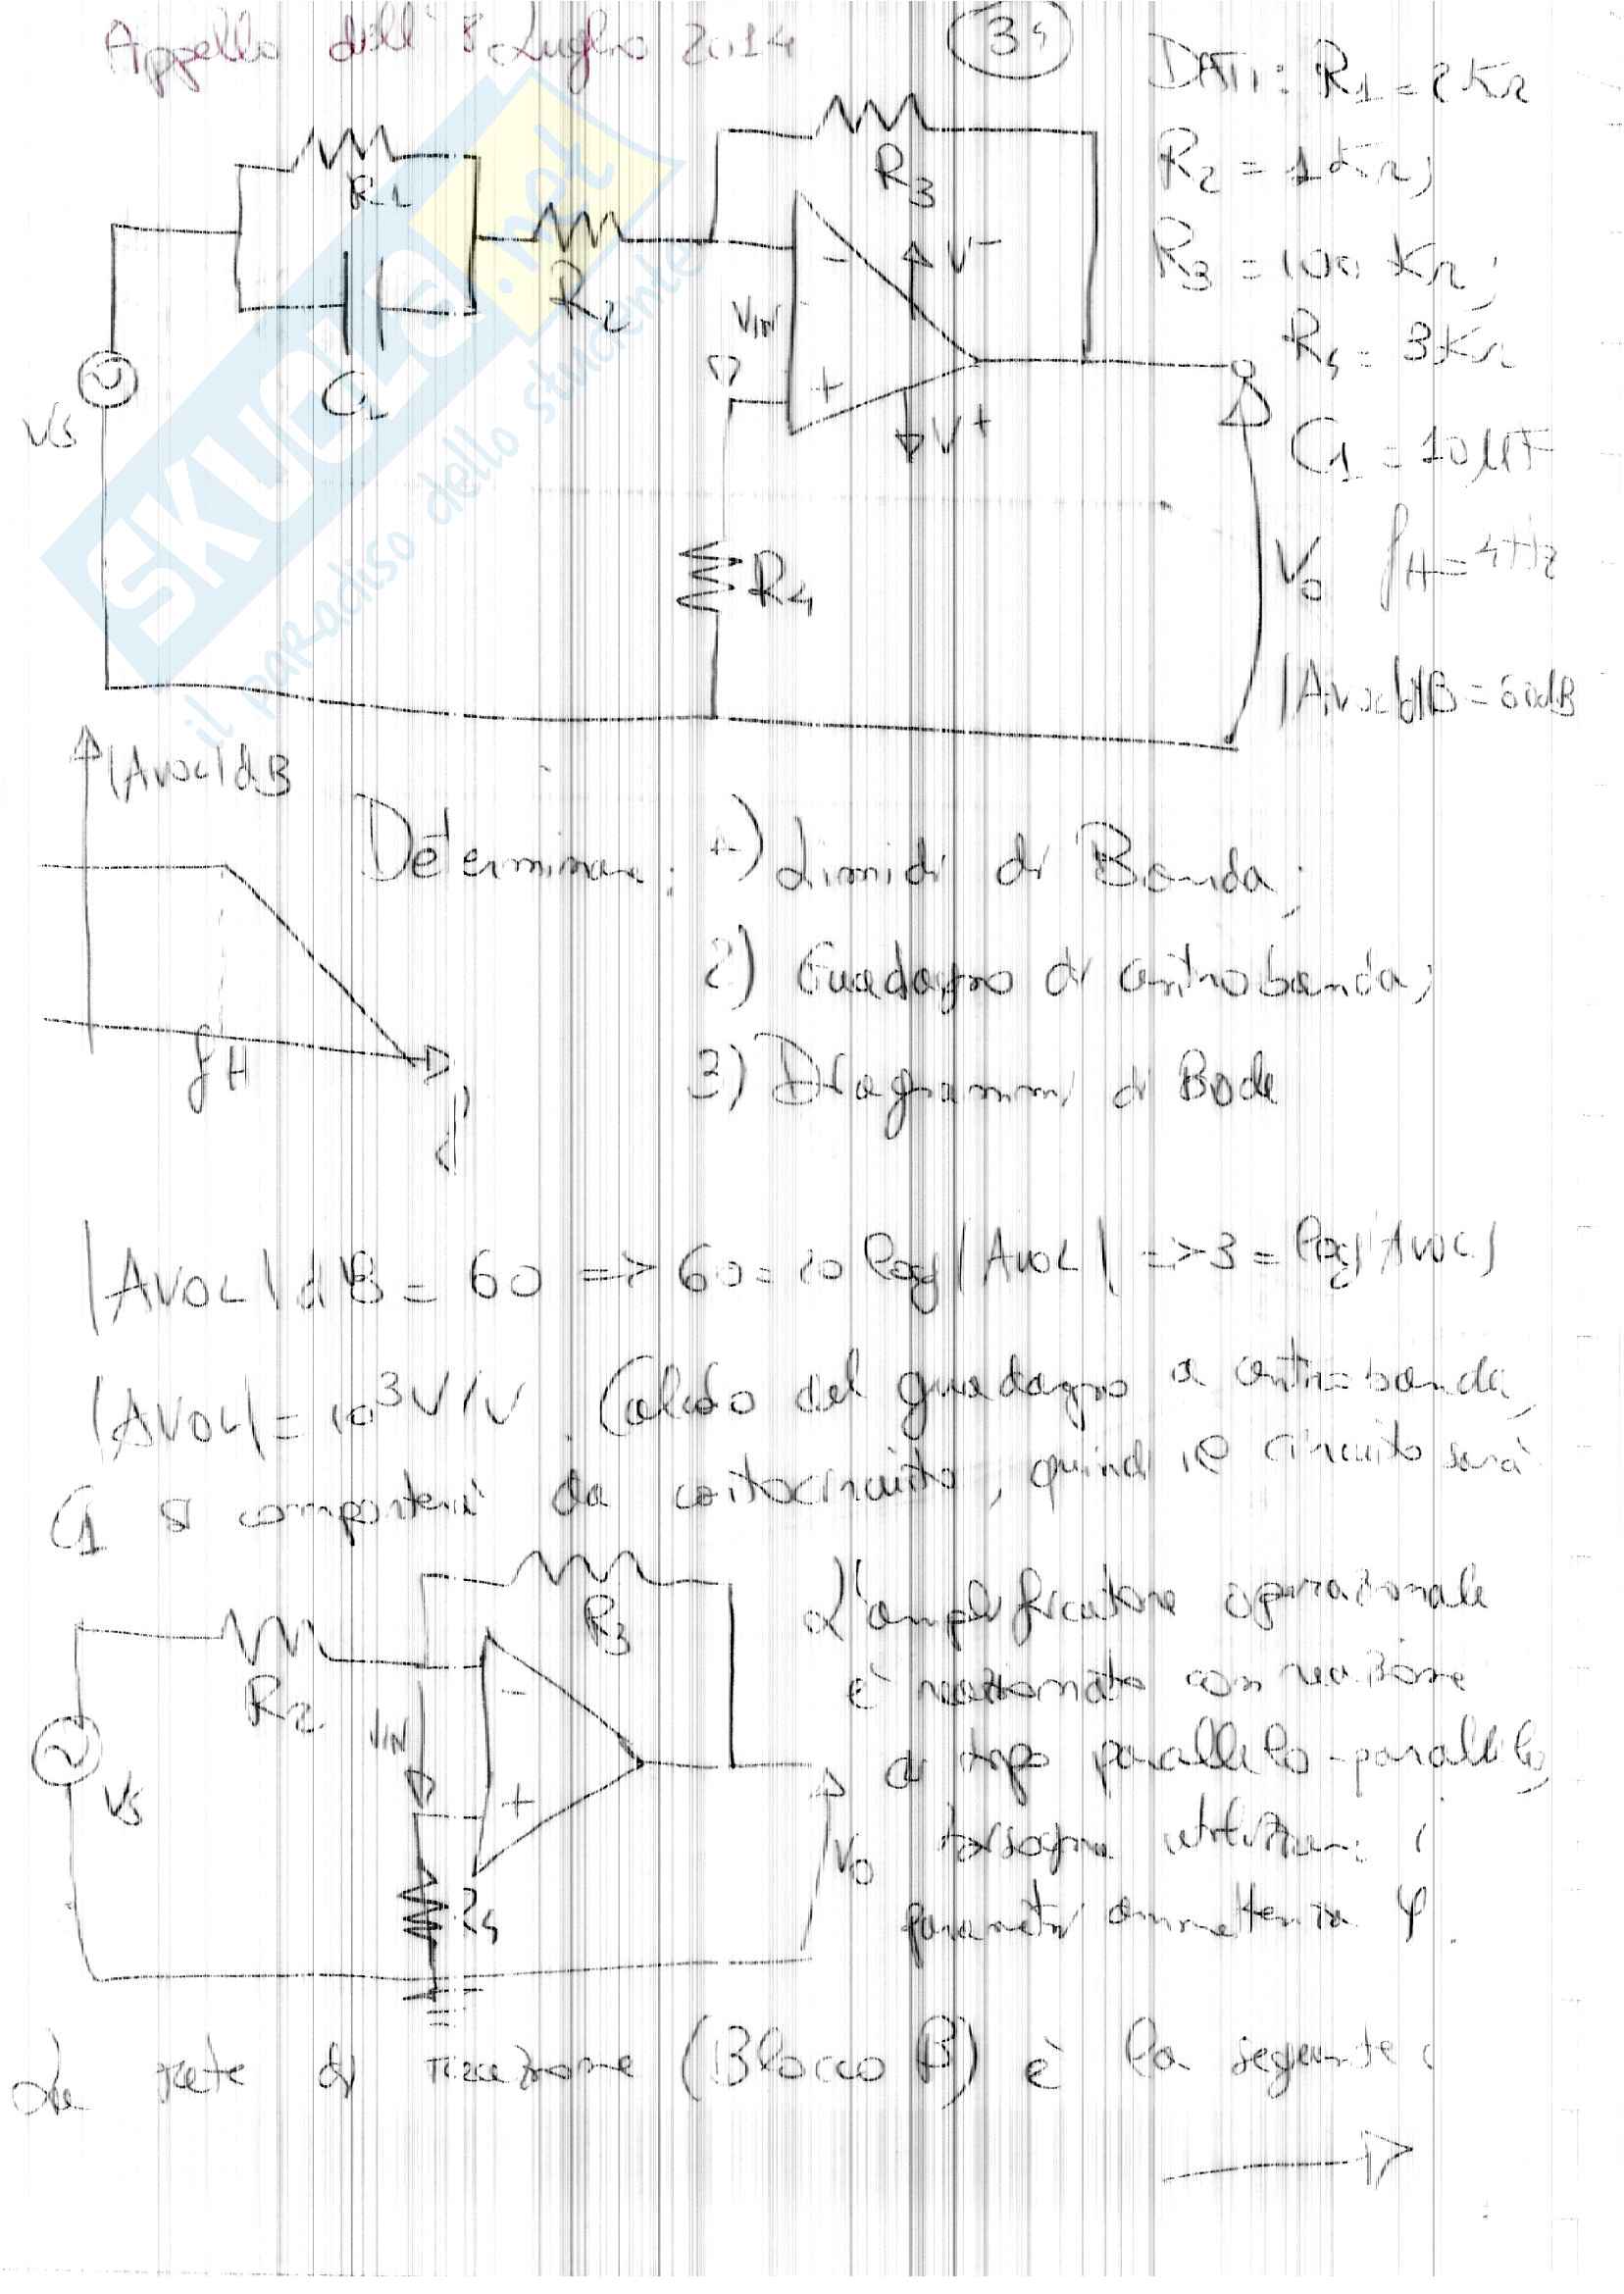 Appello dell'8 Luglio 2014
34
DATI: R1 = 2KΩ
R2 = 1KΩ;
R3 = 100 KΩ;
R4 = 3KΩ
C1 = 10μF
fH = 4Hz
|AvOL|dB = 60dB
R1
C1
R2
R3
VS
VIN
-
+
V-
V+
R4
V0
SKUOLA.net
il paradiso dello studente
|AvOL|dB
fH
f
Determinare: 1) Limiti di Banda;
2) Guadagno di centrobanda;
3) Diagrammi di Bode
|AVOL|dB = 60 => 60 = 20 log|AVOL| => 3 = log|AVOL|
|AVOL| = 10³ V/V. Calcolo del guadagno a centrobanda,
C1 si comporterà da cortocircuito, quindi il circuito sarà
R2
R3
VS
VIN
-
+
R4
V0
L'amplificatore operazionale
è reazionato con reazione
di tipo parallelo-parallelo,
bisogna utilizzare i
parametri ammettenza Y.
La rete di reazione (Blocco β) è la seguente: